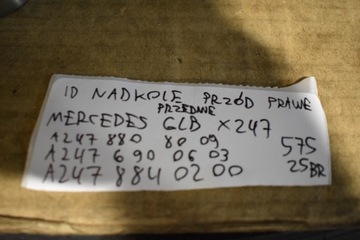 ID NADKOLE PRZÓD PRAWE
PRZEDNIE
MERCEDES GLB X247
A247 880 80 09
A247 690 06 03
A247 884 02 00
575
25 BR